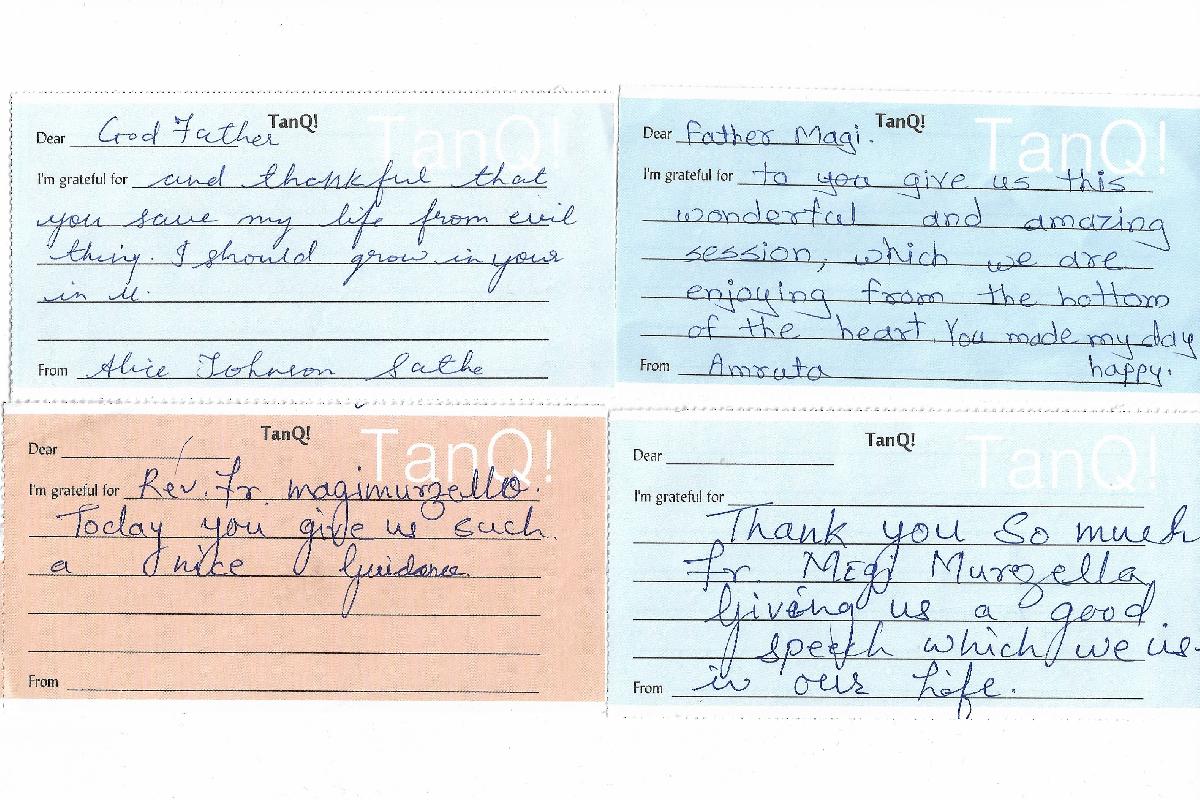 TanQ!
TanQ!
Dear God Father
I'm grateful for and thankful that
you save my life from evil
thing. I should grow in your
in u.
From Alice Johnson Sathe
TanQ!
TanQ!
Dear Father Magi.
I'm grateful for to you give us this
wonderful and amazing
session, which we are
enjoying from the bottom
of the heart. You made my day
happy.
From Amruta
TanQ!
TanQ!
Dear
I'm grateful for Rev. Fr. magimurzello.
Today you give us such
a nice Guidance.
From
TanQ!
TanQ!
Dear
I'm grateful for
Thank you So much
Fr. Megi Murzella
Giving us a good
speech which we us
From in our life.